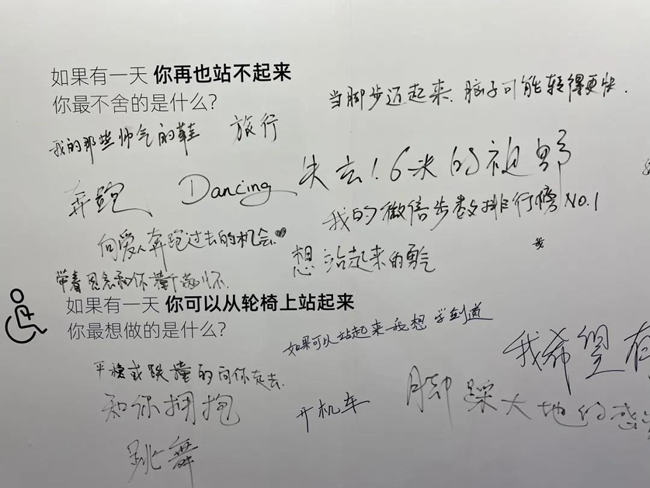 如果有一天 你再也站不起来
你最不舍的是什么?
当脚步迈起来,脑子可能转得更快.
我的那些帅气的鞋
旅行
奔跑
Dancing
失去1.6米的视野
我的微信步数排行榜 NO.1
向爱人奔跑过去的机会
想站起来的勇气
如果有一天 你可以从轮椅上站起来
你最想做的是什么?
如果可以站起来 我想学剑道
我希望有
平稳或跌撞的向你走去
和你拥抱
开机车
脚踩大地的感
跳舞